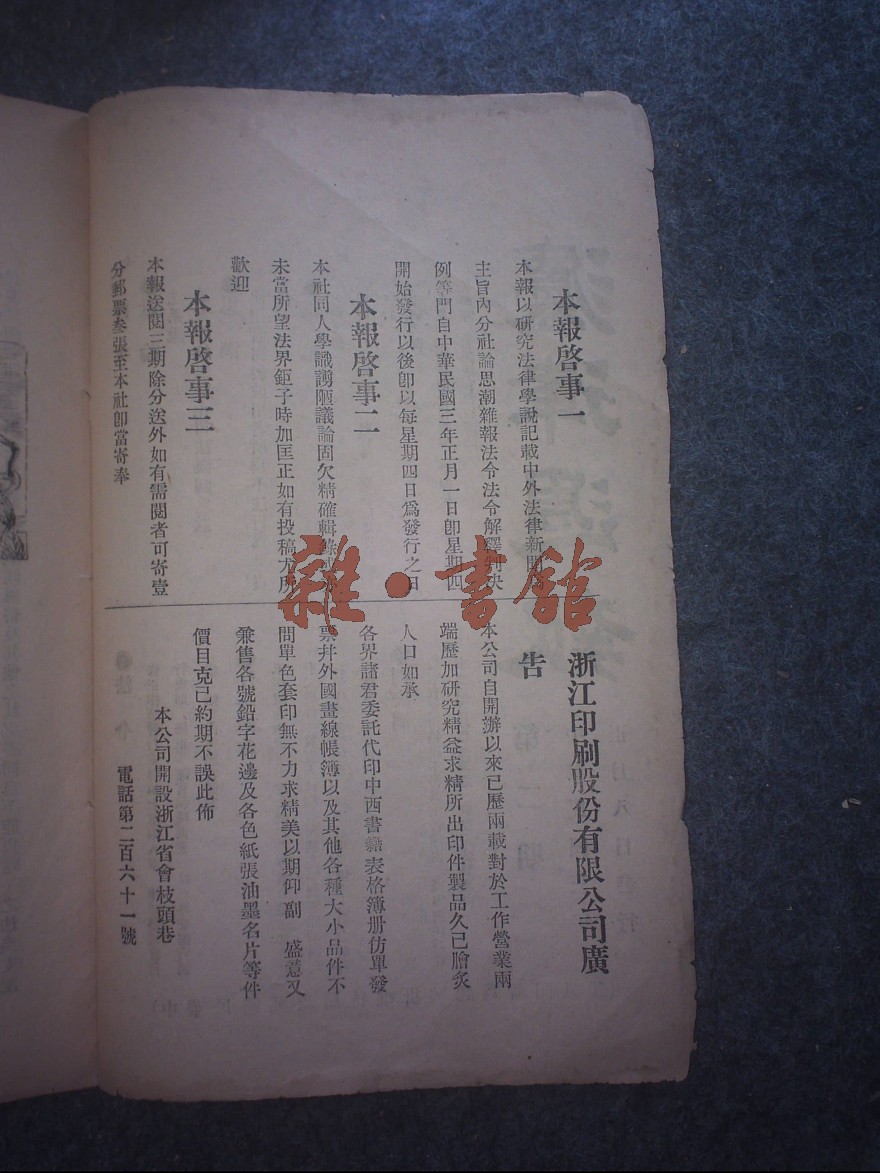 本報啓事一
本報以研究法律學說記載中外法律新聞爲
主旨內分社論思潮雜報法令法令解釋判決
例等門自中華民國三年正月一日卽星期四
開始發行以後卽以每星期四日爲發行之日
本報啓事二
本社同人學識譾陋議論固欠精確輯錄
未當所望法界鉅子時加匡正如有投稿尤所
歡迎
本報啓事三
本報送閱三期除分送外如有需閱者可寄壹
分郵票叁張至本社卽當寄奉
浙江印刷股份有限公司廣
告
本公司自開辦以來已歷兩載對於工作營業兩
端歷加研究精益求精所出印件製品久已膾炙
人口如承
各界諸君委託代印中西書籍表格簿册仿單發
票幷外國畫線帳簿以及其他各種大小品件不
間單色套印無不力求精美以期仰副 盛意又
兼售各號鉛字花邊及各色紙張油墨名片等件
價目克己約期不誤此佈
本公司開設浙江省會枝頭巷
電話第二百六十一號
雜·書館